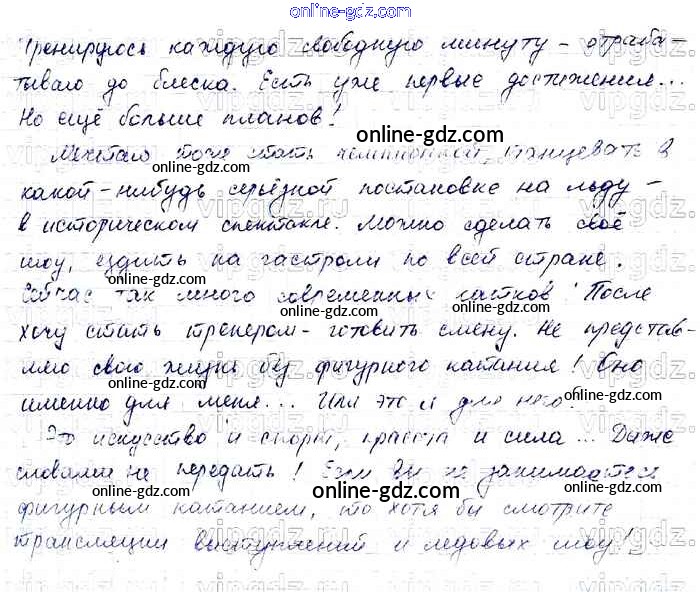 online-gdz.com
Тренируюсь каждую свободную минуту – отраба-
тываю до блеска. Есть уже первые достижения...
Но ещё больше планов!
online-gdz.com
Мечтаю тоже стать чемпионкой, танцевать в
какой-нибудь серьёзной постановке на льду –
в историческом спектакле. Можно сделать своё
шоу, ездить на гастроли по всей стране.
online-gdz.com
Сейчас так много современных катков! После
хочу стать тренером – готовить смену. Не представ-
ляю свою жизнь без фигурного катания! Оно
online-gdz.com
именно для меня... Или это я для него?
Это искусство и спорт, красота и сила... Даже
словами не передать! Если Вы не занимаетесь
online-gdz.com
фигурным катанием, то хотя бы смотрите
трансляции выступлений и ледовых шоу!